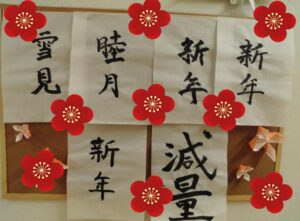 雪見
睦月
新年
新年
新年
減量